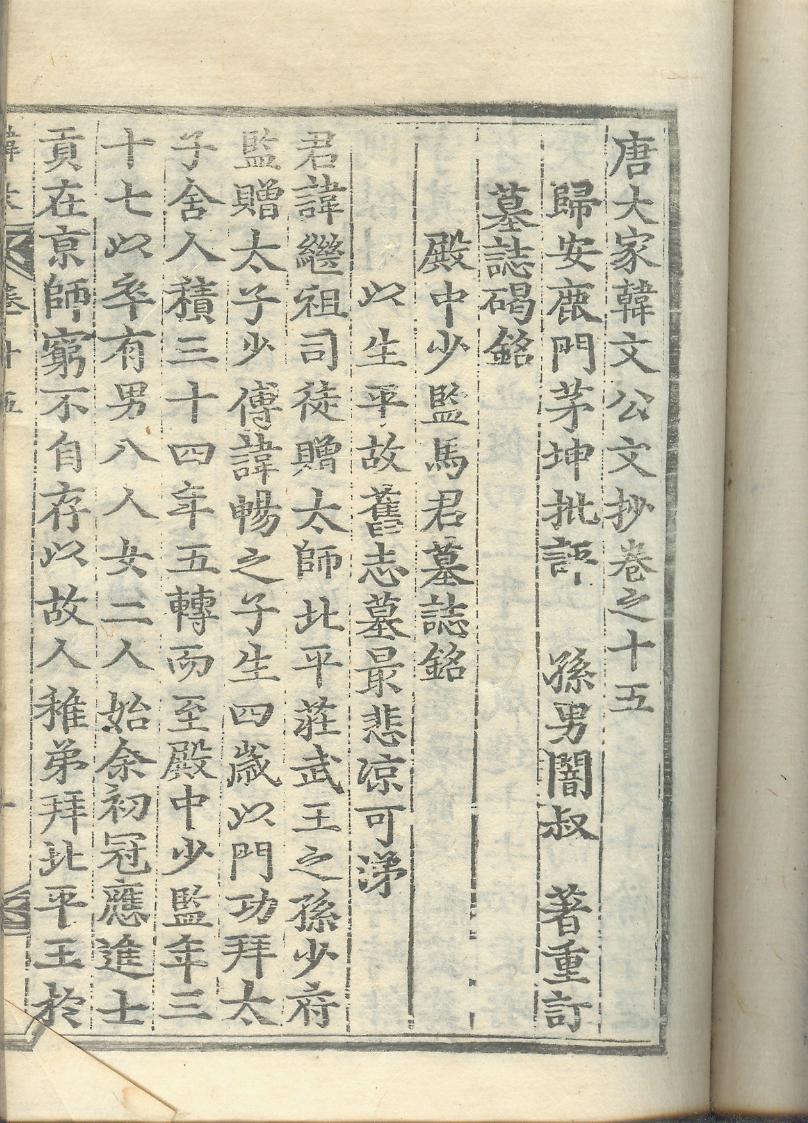 唐大家韓文公文抄卷之十五
歸安鹿門茅坤批評 孫男闇叔 著重訂
墓誌碣銘
殿中少監馬君墓誌銘
以生平故舊志墓最悲凉可涕
君諱繼祖司徒贈太師北平莊武王之孫少府
監贈太子少傅諱暢之子生四歲以門功拜太
子舍人積三十四年五轉而至殿中少監年三
十七以卒有男八人女二人始余初冠應進士
貢在京師窮不自存以故人稚弟拜北平王於
卷十五